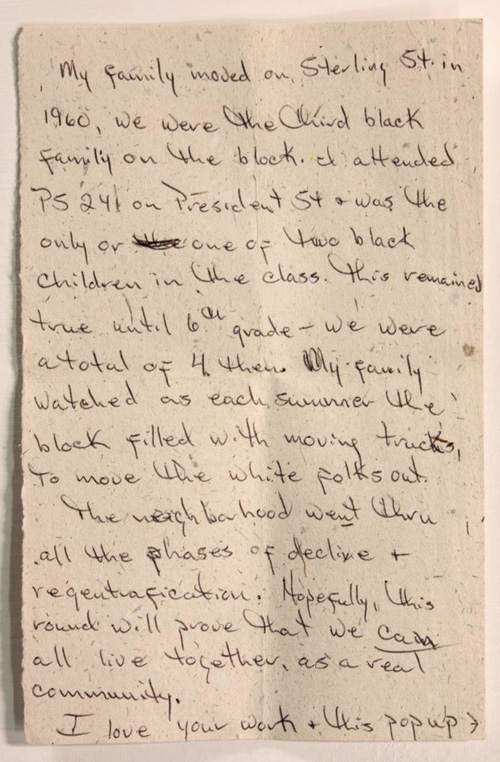 My family moved on Sterling St. in
1960, we were the third black
family on the block. I attended
PS 241 on President St + was the
only or one of two black
children in the class. This remained
true until 6th grade - we were
a total of 4 then. My family
watched as each summer the
block filled with moving trucks,
to move the white folks out.
The neighborhood went thru
all the phases of decline +
regentrafication. Hopefully, this
round will prove that we can
all live together, as a real
community.
I love your work + this pop up